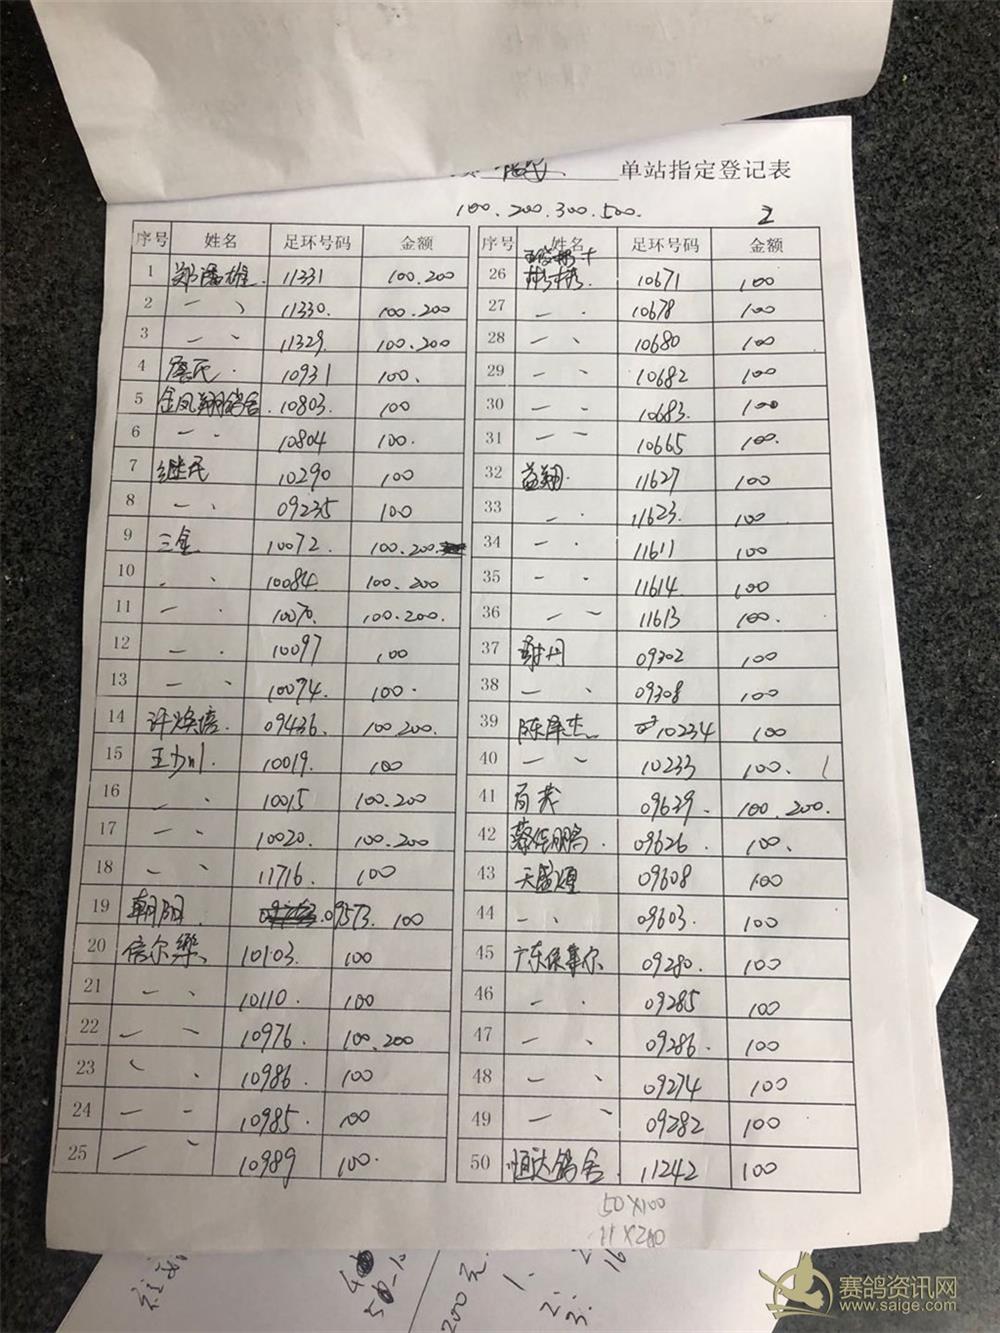 单站指定登记表
100.200.300.500.
2
序号 姓名 足环号码 金额
1 郑潘雄. 11331 100.200
2 〃 11330. 100.200
3 〃 11329. 100.200
4 唐氏. 10931 100.
5 金凤翔鸽舍. 10803. 100
6 〃 10804 100.
7 继民 10290 100
8 〃 09235 100
9 三金 10072. 100.200.
10 〃 10084. 100.200
11 〃 10070. 100.200.
12 〃 10097 100
13 〃 10074. 100.
14 许焕信. 09436. 100.200.
15 王少川. 10019. 100
16 〃 10015 100.200
17 〃 10020. 100.200
18 〃 11716. 100
19 朝阳. 09573. 100
20 信尔乐、 10103. 100
21 〃 10110. 100
22 〃 10976. 100.200
23 〃 10986. 100
24 〃 10985. 100
25 〃 10989 100.
序号 姓名 足环号码 金额
26 10671 100
27 〃 10678 100
28 〃 10680 100
29 〃 10682 100
30 〃 10683. 100
31 〃 10665 100.
32 益翔. 11627 100
33 〃 11623. 100
34 〃 11611 100
35 〃 11614. 100
36 〃 11613 100.
37 谢丹 09302 100
38 〃 09308 100
39 陈泽杰 10234 100
40 〃 10233 100.
41 百发 09629. 100.200.
42 蔡佳鹏. 09626. 100.
43 天盛煌 09608 100
44 〃 09603. 100
45 广东保事尔 09280. 100
46 〃 09285 100
47 〃 09286. 100
48 〃 09274 100
49 〃 09282 100
50 恒达鸽舍. 11242 100
50X100
11X200
200元
1.
2.
3.
16
赛鸽资讯网
www.saige.com